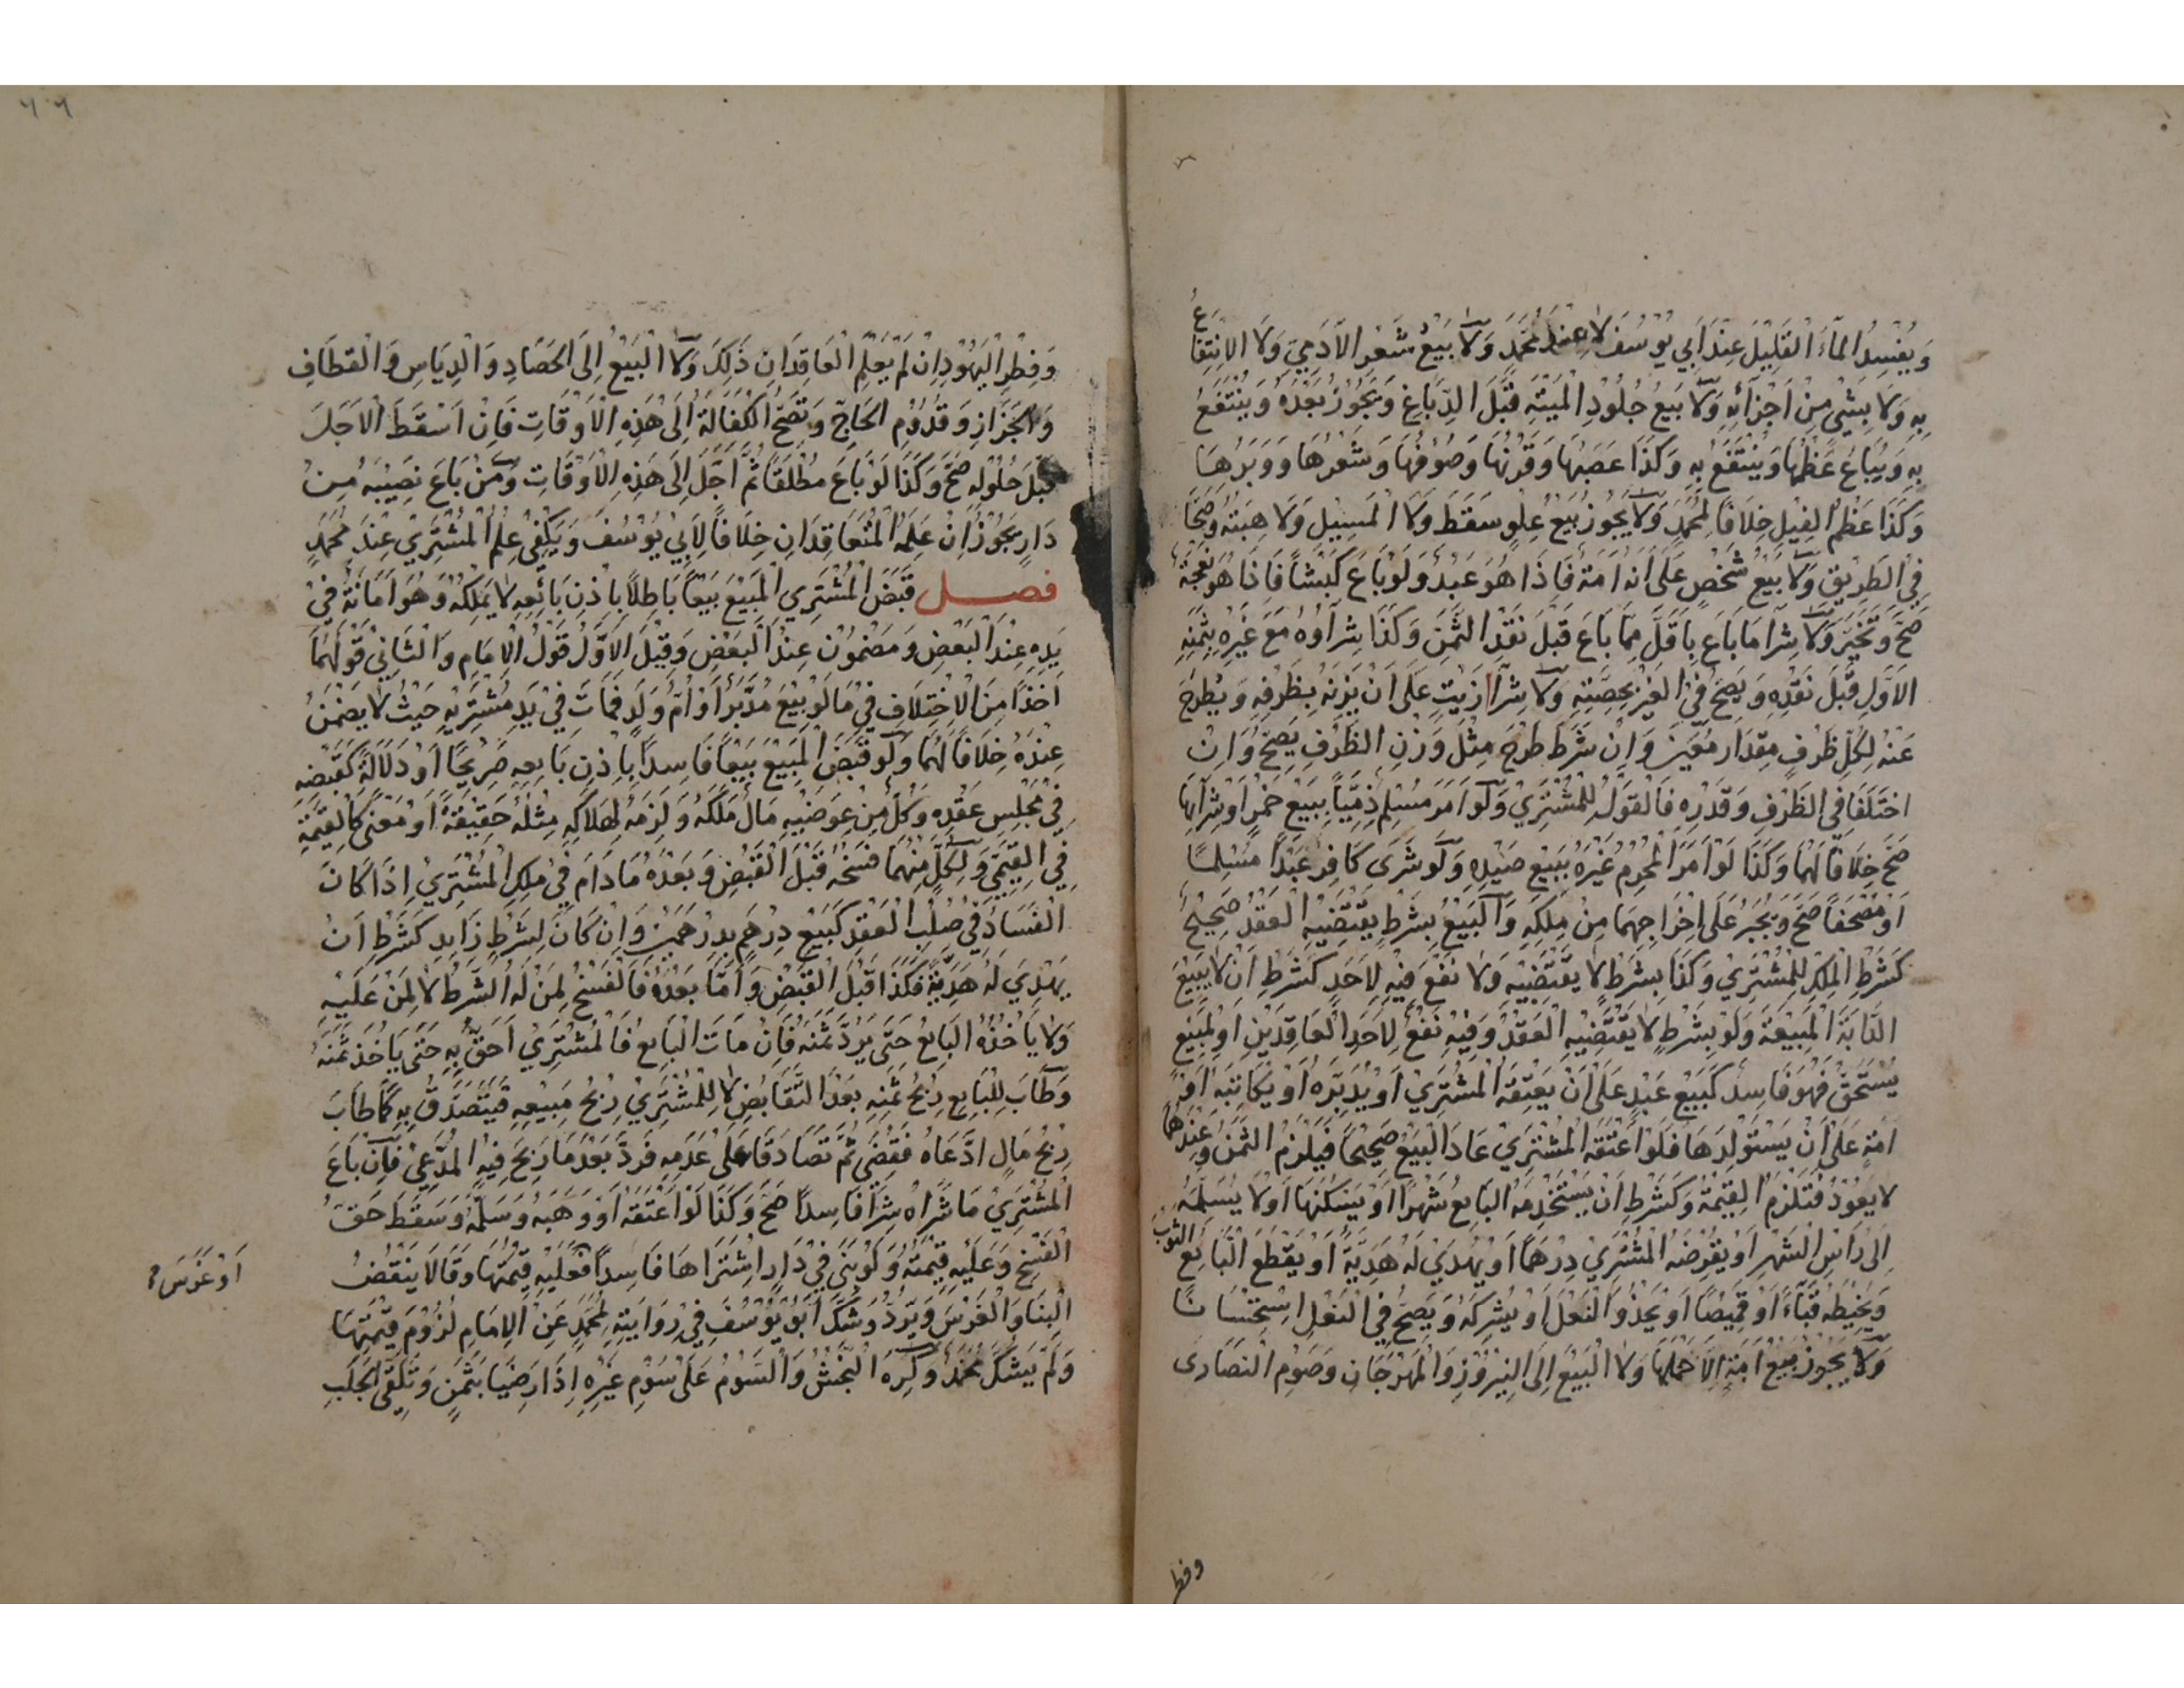 وَيُفْسِدُ الْمَاءَ الْقَلِيْلَ عِنْدَ اَبِي يُوْسُفَ لَا عِنْدَ مُحَمَّدٍ وَلَا بَيْعُ شَعْرِ الْاٰدَمِيِّ وَلَا الْاِنْتِفَاعُ
بِهِ وَلَا بِشَيْءٍ مِنْ اَجْزَآئِهِ وَلَا بَيْعُ جُلُوْدِ الْمَيْتَةِ قَبْلَ الدِّبَاغِ وَيَجُوْزُ بَعْدَهُ وَيُنْتَفَعُ
بِهِ وَيُبَاعُ عَظْمُهَا وَيُنْتَفَعُ بِهِ وَكَذَا عَصَبُهَا وَقَرْنُهَا وَصُوْفُهَا وَشَعْرُهَا وَوَبَرُهَا
وَكَذَا عَظْمُ الْفِيْلِ خِلَافًا لِمُحَمَّدٍ وَلَا يَجُوزُ بَيْعُ عِلْوٍ سَقَطَ وَلَا الْمَسِيْلِ وَلَا هِبَتُهُ وَصَحَّا
فِي الطَّرِيْقِ وَلَا بَيْعُ شَخْصٍ عَلَى اَنَّهُ اَمَةٌ فَاِذَا هُوَ عَبْدٌ وَلَوْ بَاعَ كَبْشًا فَاِذَا هُوَ نَعْجَةٌ
صَحَّ وَتَخَيَّرَ وَلَا شِرَا مَا بَاعَ بِاَقَلَّ مِمَّا بَاعَ قَبْلَ نَقْدِ الثَّمَنِ وَكَذَا شِرَآؤُهُ مَعَ غَيْرِهِ بِثَمَنِهِ
الْاَوَّلِ قَبْلَ نَقْدِهِ وَيَصِحُّ فِي الْغَيْرِ بِحِصَّتِهِ وَلَا شِرَآ زَيْتٍ عَلَى اَنْ يَزِنَهُ بِظَرْفِهِ وَيُطْرَحَ
عَنْهُ لِكُلِّ ظَرْفٍ مِقْدَارٌ مُعَيَّنٌ وَاِنْ شَرَطَ طَرْحَ مِثْلَ وَزْنِ الظَّرْفِ يَصِحُّ وَاِنْ
اخْتَلَفَا فِي الظَّرْفِ وَقَدْرِهِ فَالْقَوْلُ لِلْمُشْتَرِيْ وَلَوْ اَمَرَ مُسْلِمٌ ذِمِّيًّا بِبَيْعِ خَمْرٍ اَوْ شِرَآئِهَا
صَحَّ خِلَافًا لَهُمَا وَكَذَا لَوْ اَمَرَ الْمُحْرِمُ غَيْرَهُ بِبَيْعِ صَيْدِهِ وَلَوْ شَرَى كَافِرٌ عَبْدًا مُسْلِمًا
اَوْ مُصْحَفًا صَحَّ وَيُجْبَرُ عَلَى اِخْرَاجِهِمَا مِنْ مِلْكِهِ وَالْبَيْعُ بِشَرْطٍ يَقْتَضِيْهِ الْعَقْدُ صَحِيْحٌ
كَشَرْطِ الْمِلْكِ لِلْمُشْتَرِيْ وَكَذَا بِشَرْطٍ لَا يَقْتَضِيْهِ وَلَا نَفْعَ فِيْهِ لِاَحَدٍ كَشَرْطِ اَنْ لَا يَبِيْعَ
الدَّابَّةَ الْمَبِيْعَةَ وَلَوْ بِشَرْطٍ لَا يَقْتَضِيْهِ الْعَقْدُ وَفِيْهِ نَفْعٌ لِاَحَدِ الْعَاقِدَيْنِ اَوْ لِمَبِيْعٍ
يَسْتَحِقُّ فَهُوَ فَاسِدٌ كَبَيْعِ عَبْدٍ عَلَى اَنْ يَعْتِقَهُ الْمُشْتَرِيْ اَوْ يُدَبِّرَهُ اَوْ يُكَاتِبَهُ اَوْ
اَمَةٍ عَلَى اَنْ يَسْتَوْلِدَهَا فَلَوْ اَعْتَقَهُ الْمُشْتَرِيْ عَادَ الْبَيْعُ صَحِيْحًا فَيَلْزَمُ الثَّمَنُ وَعِنْدَهُمَا
لَا يَعُوْدُ فَتَلْزَمُ الْقِيْمَةُ وَكَشَرْطِ اَنْ يَسْتَخْدِمَهُ الْبَايِعُ شَهْرًا اَوْ يَسْكُنَهَا اَوْ لَا يُسَلِّمَهُ
اِلَى رَأْسِ الشَّهْرِ اَوْ يُقْرِضَهُ الْمُشْتَرِيْ دِرْهَمًا اَوْ يُهْدِيَ لَهُ هَدِيَّةً اَوْ يَقْطَعَ الْبَائِعُ الثَّوْبَ
وَيَخِيْطَهُ قَبَآءً اَوْ قَمِيْصًا اَوْ يَحْذُوَ النَّعْلَ اَوْ يُشْرِكَهُ وَيَصِحُّ فِي النَّعْلِ اِسْتِحْسَانًا
وَلَا يَجُوْزُ بَيْعُ اَمَةٍ اِلَّا حَمْلَهَا وَلَا الْبَيْعُ اِلَى النَّيْرُوْزِ وَالْمِهْرَجَانِ وَصَوْمِ النَّصَارَى
وفطر
٦٦
وَفِطْرِ الْيَهُوْدِ اِنْ لَمْ يَعْلَمِ الْعَاقِدَانِ ذَلِكَ وَلَا الْبَيْعُ اِلَى الْحَصَادِ وَالدِّيَاسِ وَالْقِطَافِ
وَالْجِزَازِ وَقُدُوْمِ الْحَاجِّ وَتَصِحُّ الْكَفَالَةُ اِلَى هَذِهِ الْاَوْقَاتِ فَاِنْ اَسْقَطَ الْاَجَلَ
قَبْلَ حُلُوْلِهِ صَحَّ وَكَذَا لَوْ بَاعَ مُطْلَقًا ثُمَّ اَجَّلَ اِلَى هَذِهِ الْاَوْقَاتِ وَمَنْ بَاعَ نَصِيْبَهُ مِنْ
دَارٍ يَجُوْزُ اِنْ عَلِمَهُ الْمُتَعَاقِدَانِ خِلَافًا لِاَبِيْ يُوْسُفَ وَيَكْفِيْ عِلْمُ الْمُشْتَرِيْ عِنْدَ مُحَمَّدٍ
فصل قَبَضَ الْمُشْتَرِي الْمَبِيْعَ بَيْعًا بَاطِلًا بِاِذْنِ بَائِعِهِ لَا يَمْلِكُهُ وَهُوَ اَمَانَةٌ فِيْ
يَدِهِ عِنْدَ الْبَعْضِ وَمَضْمُوْنٌ عِنْدَ الْبَعْضِ وَقِيْلَ الْاَوَّلُ قَوْلُ الْاِمَامِ وَالثَّانِيْ قَوْلُهُمَا
اَخْذًا مِنَ الْاِخْتِلَافِ فِيْ مَا لَوْ بِيْعَ مُدَبَّرٌ اَوْ اُمُّ وَلَدٍ فَمَاتَ فِيْ يَدِ مُشْتَرِيْهِ حَيْثُ لَا يَضْمَنُ
عِنْدَهُ خِلَافًا لَهُمَا وَلَوْ قَبَضَ الْمَبِيْعَ بَيْعًا فَاسِدًا بِاِذْنِ بَايِعِهِ صَرِيْحًا اَوْ دَلَالَةً كَقَبْضِهِ
فِيْ مَجْلِسِ عَقْدِهِ وَكُلٌّ مِنْ عِوَضَيْهِ مَالٌ مَلَكَهُ وَلَزِمَهُ لِهَلَاكِهِ مِثْلُهُ حَقِيْقَةً اَوْ مَعْنًى كَالْقِيْمَةِ
فِي الْقِيْمِيِّ وَلِكُلٍّ مِنْهُمَا فَسْخُهُ قَبْلَ الْقَبْضِ وَبَعْدَهُ مَا دَامَ فِيْ مِلْكِ الْمُشْتَرِيْ اِذَا كَانَ
الْفَسَادُ فِيْ صُلْبِ الْعَقْدِ كَبَيْعِ دِرْهَمٍ بِدِرْهَمَيْنِ وَاِنْ كَانَ لِشَرْطٍ زَايِدٍ كَشَرْطِ اَنْ
يُهْدِيَ لَهُ هَدِيَّةً فَكَذَا قَبْلَ الْقَبْضِ وَاَمَّا بَعْدَهُ فَالْفَسْخُ لِمَنْ لَهُ الشَّرْطُ لَا لِمَنْ عَلَيْهِ
وَلَا يَأْخُذُهُ الْبَايِعُ حَتَّى يَرُدَّ ثَمَنَهُ فَاِنْ مَاتَ الْبَايِعُ فَالْمُشْتَرِيْ اَحَقُّ بِهِ حَتَّى يَأْخُذَ ثَمَنَهُ
وَطَابَ لِلْبَايِعِ رِبْحُ ثَمَنِهِ بَعْدَ التَّقَابُضِ لَا لِلْمُشْتَرِيْ رِبْحُ مَبِيْعِهِ فَيَتَصَدَّقُ بِهِ كَمَا طَابَ
رِبْحُ مَالٍ ادَّعَاهُ فَقُضِيَ ثُمَّ تَصَادَقَا عَلَى عَدَمِهِ فَرَدَّ بَعْدَمَا رَبِحَ فِيْهِ الْمُدَّعِيْ فَاِنْ بَاعَ
الْمُشْتَرِيْ مَا شَرَاهُ شِرَآ فَاسِدًا صَحَّ وَكَذَا لَوْ اَعْتَقَهُ اَوْ وَهَبَهُ وَسَلَّمَهُ وَسَقَطَ حَقُّ
الْفَسْخِ وَعَلَيْهِ قِيْمَتُهُ وَلَوْ بَنَى فِيْ دَارٍ اشْتَرَاهَا فَاسِدًا فَعَلَيْهِ قِيْمَتُهَا وَقَالَا يَنْقُضُ
اَوْ غَرَسَ
الْبِنَا وَالْغَرْسَ وَيَرُدُّ وَشَكَّ اَبُوْ يُوْسُفَ فِيْ رِوَايَتِهِ لِمُحَمَّدٍ عَنِ الْاِمَامِ لُزُوْمَ قِيْمَتِهَا
وَلَمْ يَشُكَّ مُحَمَّدٌ وَكُرِهَ النَّجْشُ وَالسَّوْمُ عَلَى سَوْمِ غَيْرِهِ اِذَا رَضِيَا بِثَمَنٍ وَتَلَقِّي الْجَلَبِ